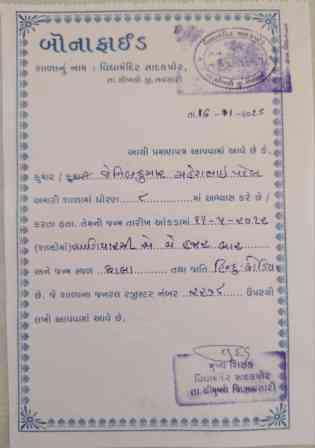 બૉનાફાઈડ
શાળાનું નામ : વિદ્યામંદિર સાદકપોર,
તા. ચીખલી જી. નવસારી
તા. 16 -
આથી પ્રમાણપત્ર આપવામાં આવે છે કે
કુમાર / જેનિલકુમાર મહેશભાઈ પટેલ
અમારી શાળામાં ધોરણ ૮ માં અભ્યાસ કરે છે /
કરતા હતા. તેમની જન્મ તારીખ આંકડામાં ૧૧-૫-૨૦૧૨
(શબ્દોમાં) અગિયારમી મે બે હજાર બાર
અને જન્મ સ્થળ તથા જાતિ હિન્દુ
છે. જે શાળાના જનરલ રજીસ્ટર નંબર ૨૨૧૬ ઉપરથી
લખી આપવામાં આવે છે.
મુખ્ય શિક્ષક
વિદ્યામંદિર સાદકપોર
તા. ચીખલી જિ. નવસારી